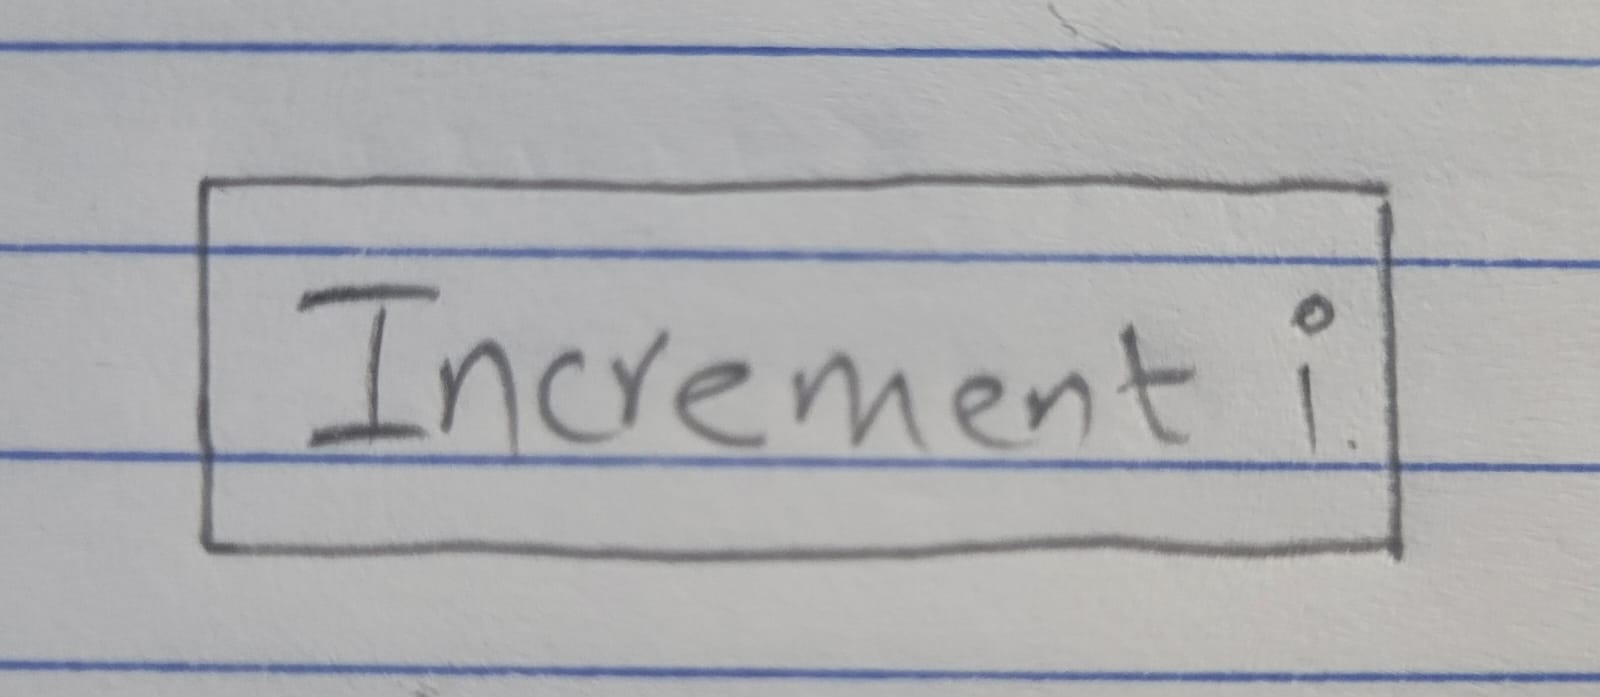 Increment i.